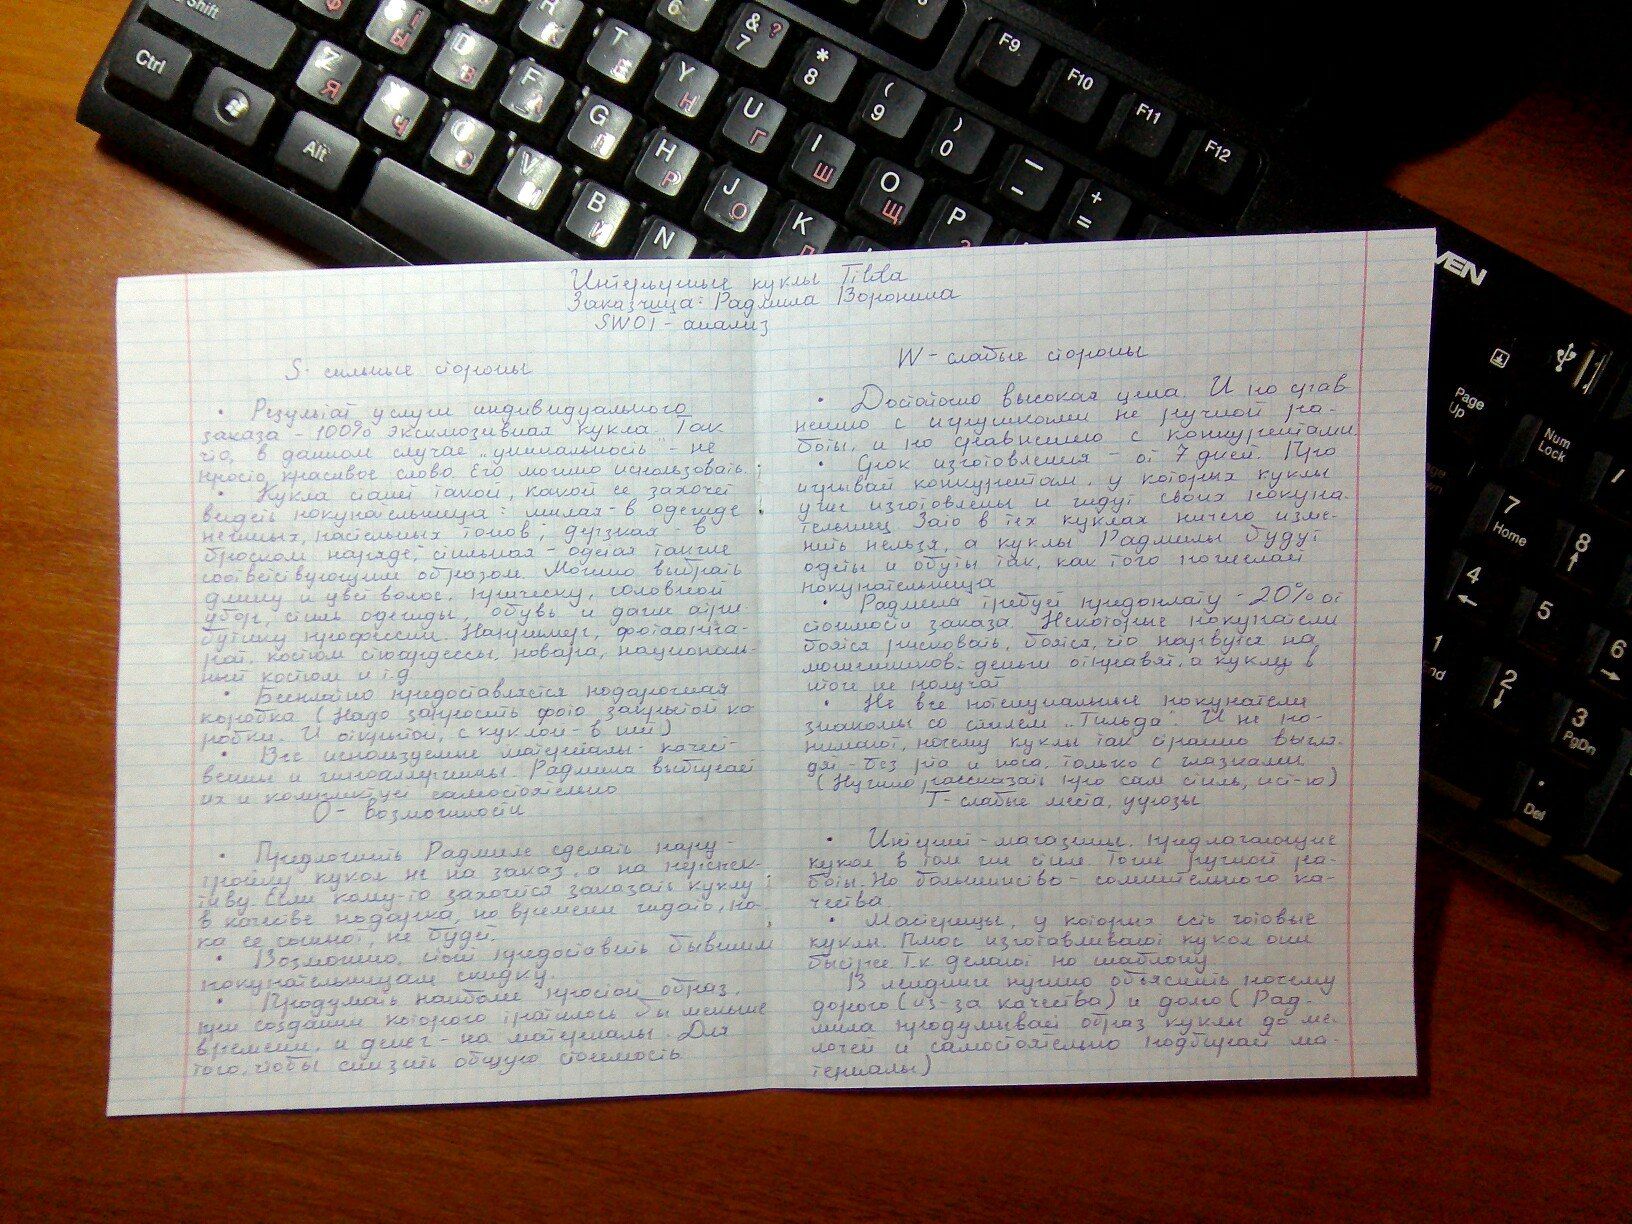 Интерьерные куклы Tilda
Заказчица: Радмила Воронина
SWOT - анализ
S - сильные стороны
• Результат услуги индивидуального
заказа - 100% эксклюзивная кукла. Так
что, в данном случае „уникальность" - не
просто красивое слово. Его можно использовать.
• Кукла станет такой, какой ее захочет
видеть покупательница: милая - в одежде
нежных, пастельных тонов; дерзкая - в
броском наряде; стильная - одетая таким
соответствующим образом. Можно выбрать
длину и цвет волос, прическу, головной
убор, стиль одежды, обувь и даже атри-
бутику профессии. Например, фотоаппа-
рат, костюм стюардессы, повара, националь-
ный костюм и т.д.
• Бесплатно предоставляется подарочная
коробка (Надо запросить фото закрытой ко
робки. И открытой, с куклой - в ней)
• Все используемые материалы - качест-
венны и гипоаллергенны. Радмила выбирает
их и комплектует самостоятельно
O - возможности
• Предложить Радмиле сделать пару -
тройку кукол не на заказ, а на перспек-
тиву. Если кому-то захочется заказать куклу
в качестве подарка, но времени ждать, по-
ка ее сошьют, не будет.
• Возможно, стоит предоставить бывшим
покупательницам скидку.
• Продумать наиболее простой образ,
при создании которого тратилось бы меньше
времени, и денег - на материалы. Для
того, чтобы снизить общую стоимость
W - слабые стороны
• Достаточно высокая цена. И по срав
нению с игрушками не ручной ра-
боты, и по сравнению с конкурентами.
• Срок изготовления - от 7 дней. Про
игрывает конкурентам, у которых куклы
уже изготовлены и ждут своих покупа-
тельниц. Зато в тех куклах ничего изме-
нить нельзя, а куклы Радмилы будут
одеты и обуты так, как того пожелает
покупательница
• Радмила требует предоплату - 20% от
стоимости заказа. Некоторые покупатели
боятся рисковать, боятся, что нарвутся на
мошенников: деньги отправят, а куклу в
итоге не получат
• Не все потенциальные покупатели
знакомы со стилем „Тильда". И не по-
нимают, почему куклы так странно выгля-
дят - без рта и носа, только с глазками
(Нужно рассказать про сам стиль, ист-ю)
T - слабые места, угрозы
• Интернет-магазины, предлагающие
кукол в том же стиле. Тоже ручной ра-
боты. Но большинство - сомнительного ка-
чества
• Мастерицы, у которых есть готовые
куклы. Плюс изготавливают кукол они
быстрее. Т.к делают по шаблону
В лендинге нужно объяснить почему
дорого (из-за качества) и долго (Рад-
мила продумывает образ куклы до ме-
лочей и самостоятельно подбирает ма-
териалы)
Shift
Ctrl
Alt
Z Я
F А
G П
H Р
J О
K
V М
B И
N
T Е
Y Н
U Г
I Ш
O Щ
P З
& 7 ?
* 8
( 9
) 0
_ -
+ =
F9
F10
F11
F12
VEN
Page Up
Num Lock
/
7 Home
8
4
5
6
1
2
3 PgDn
. Del